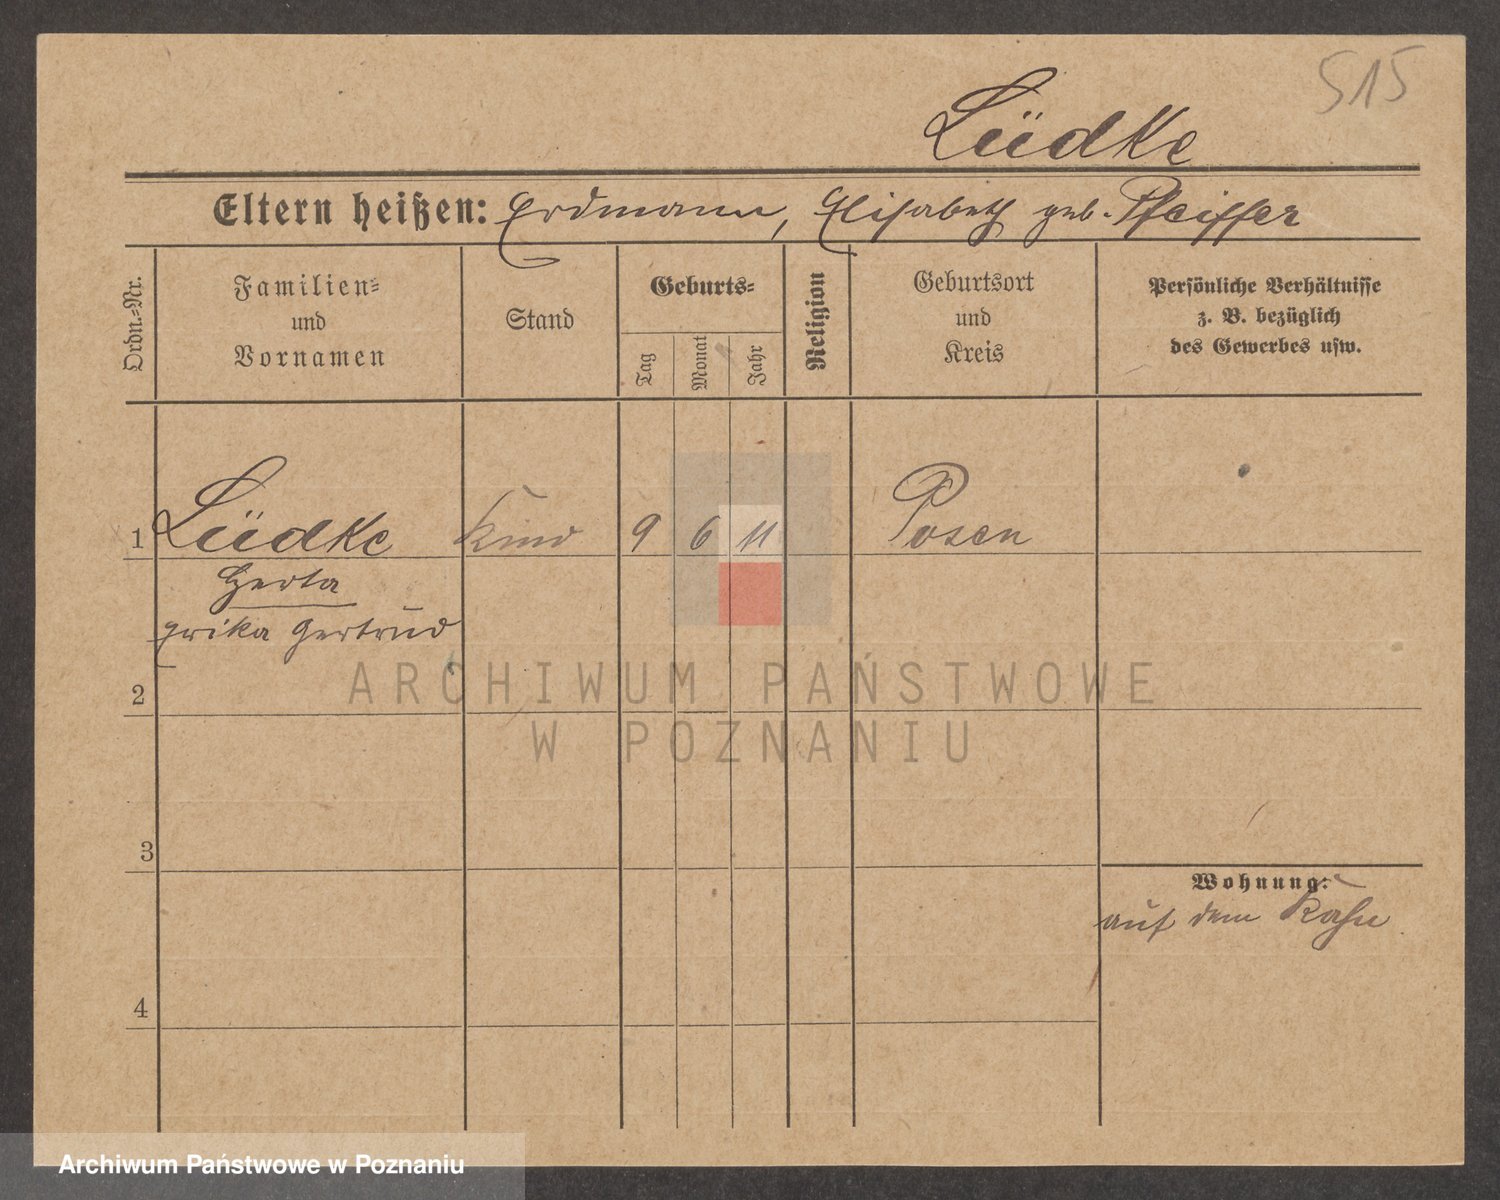 515
Lüdke
Eltern heißen: Erdmann, Elisabeth geb. Pfeiffer
Ordn.-Nr.
Familien-
und
Vornamen
Stand
Geburts-
Tag
Monat
Jahr
Religion
Geburtsort
und
Kreis
Persönliche Verhältnisse
z. B. bezüglich
des Gewerbes usw.
1 Lüdke Kind 9 6 11 Posen
Herta
Erika Gertrud
ARCHIWUM PAŃSTWOWE
2
W POZNANIU
3
Wohnung:
auf dem Kahn
4
Archiwum Państwowe w Poznaniu